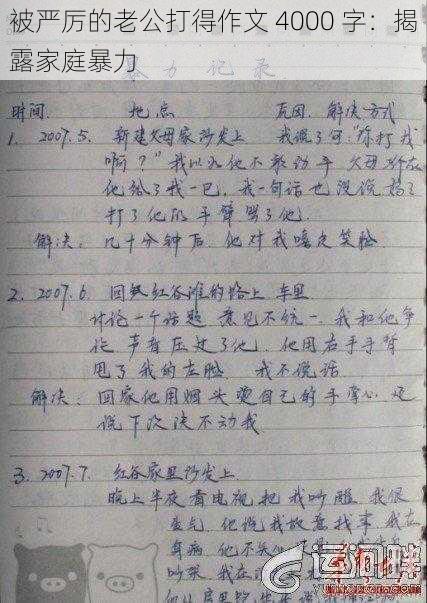 被严厉的老公打得作文 4000 字：揭
露家庭暴力
暴力记录
时间. 地点 原因. 解决方式
1. 2007.5. 新建父母家沙发上 我说了句:"你打我
啊？" 我以为他不敢动手 父母
他给了我一巴, 我一句话也没说
打了他的手臂骂了他.
解决: 几十分钟后. 他对我嘻皮笑脸
2. 2007.6. 回红谷滩的路上 车里
讨论一个话题 意见不统一. 我和他争
论 声音压过了他, 他用右手手背
甩了我的左脸. 我不说话
解决: 回家他用烟头烫自己的手掌心 还
说下次决不动我
3. 2007.7. 红谷家里沙发上
晚上半夜看电视把我吵醒 我很
生气, 他说我故意找事, 我在
身病, 他不
吵架, 我在